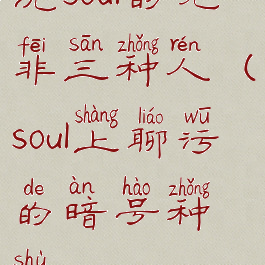 玩soul的无
fēi sān zhǒng rén
非三种人（
shàng liáo wū
soul上聊污
de àn hào zhǒng
的暗号种
shù